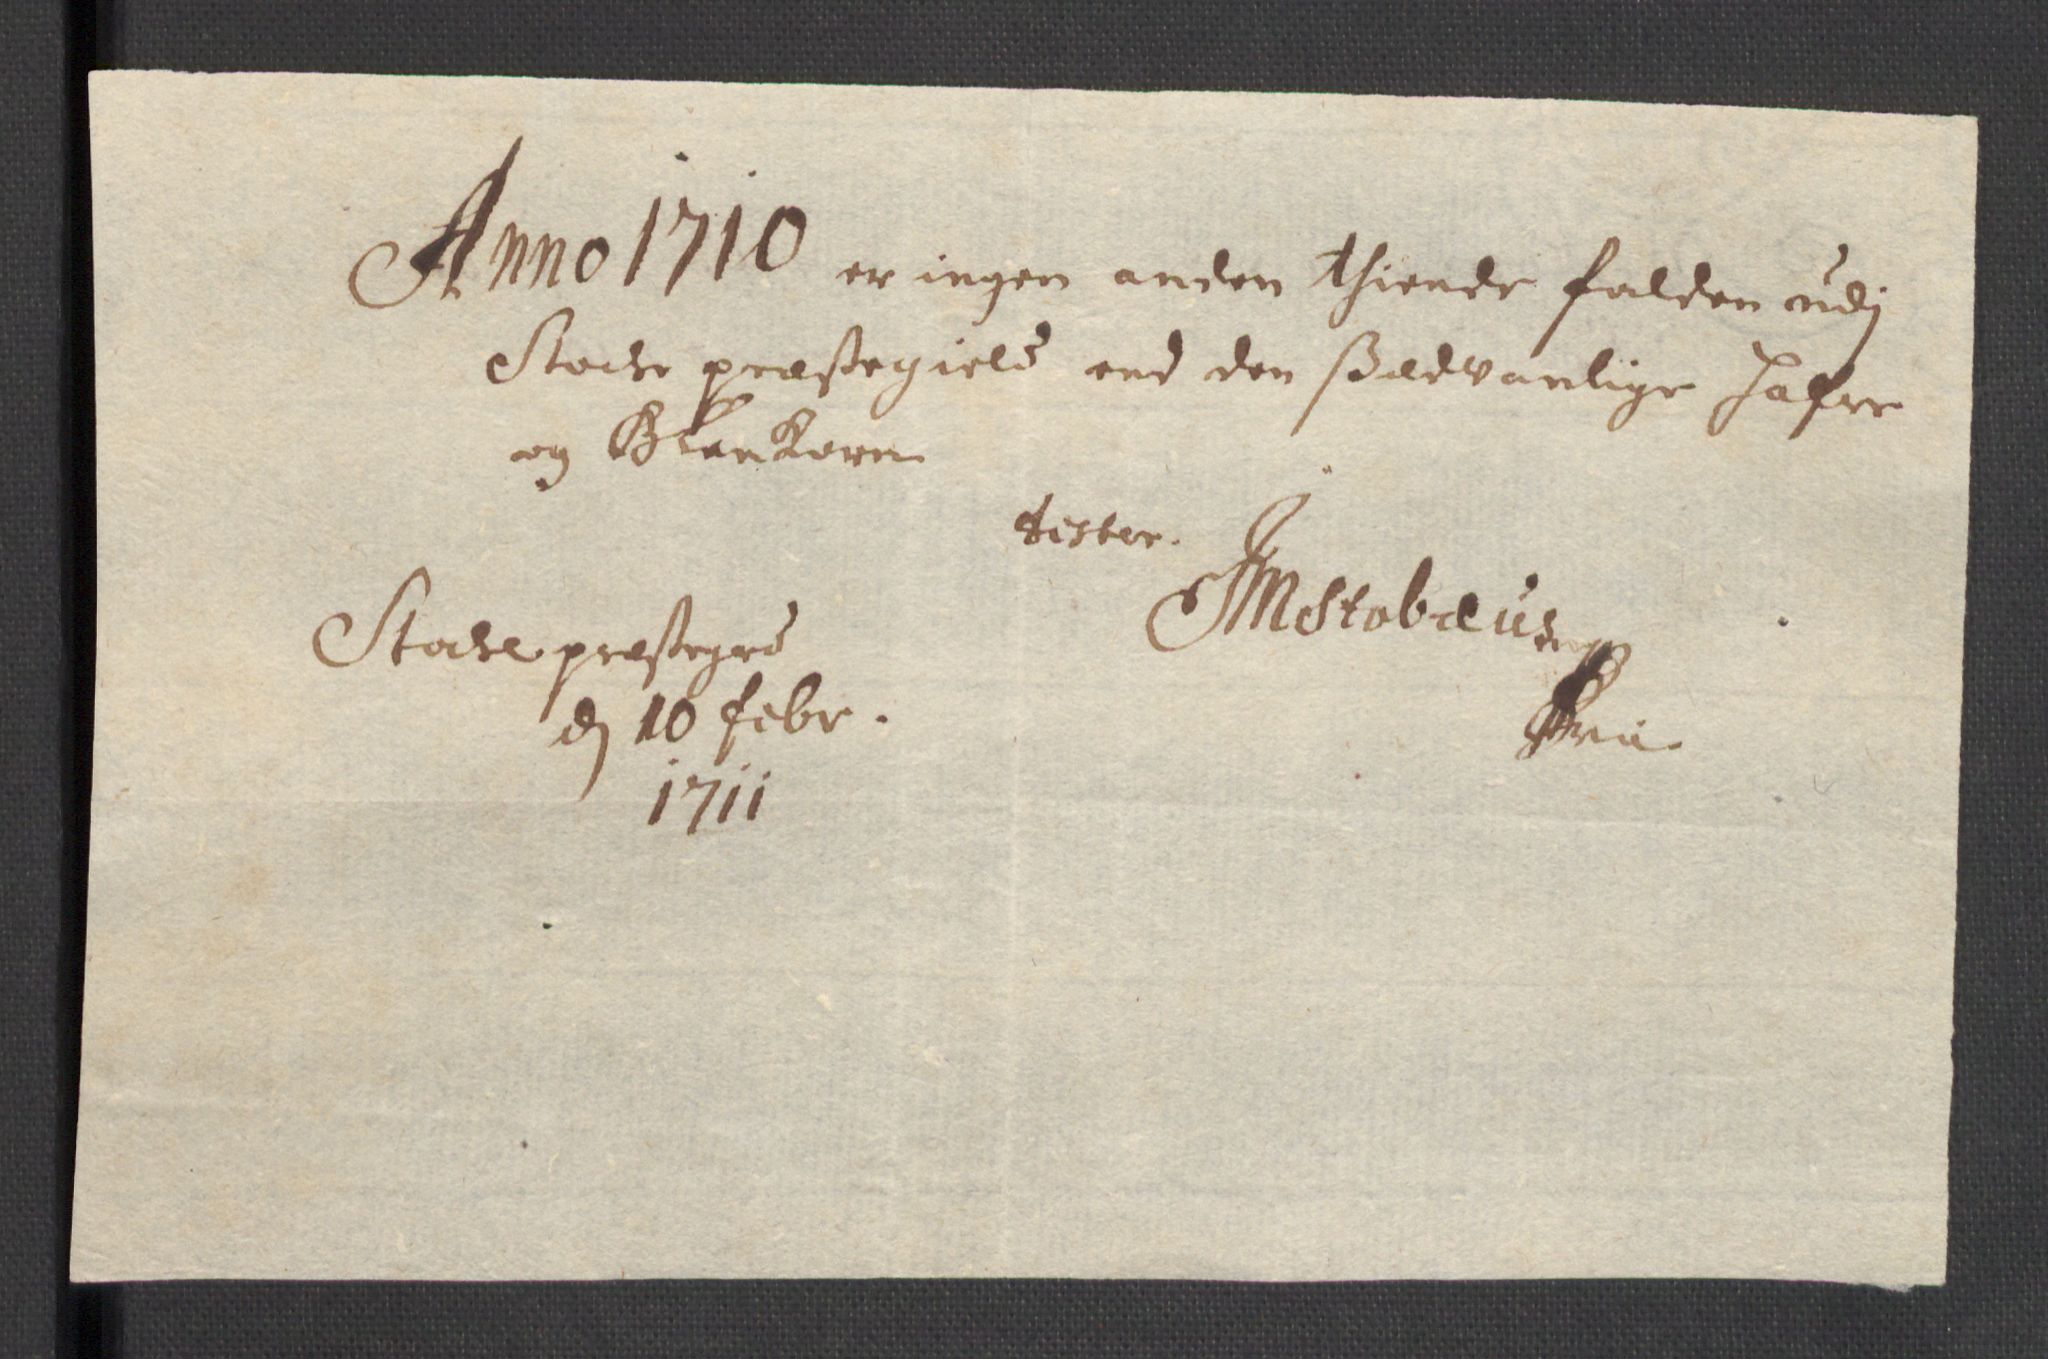 Anno 1710 er ingen anden thiende falden udj
Stode præstegield end den sædvanlige Hafre
og Blankorn
testor.
JMStobæus
Stode præstegrd
dj 10 febr.
1711